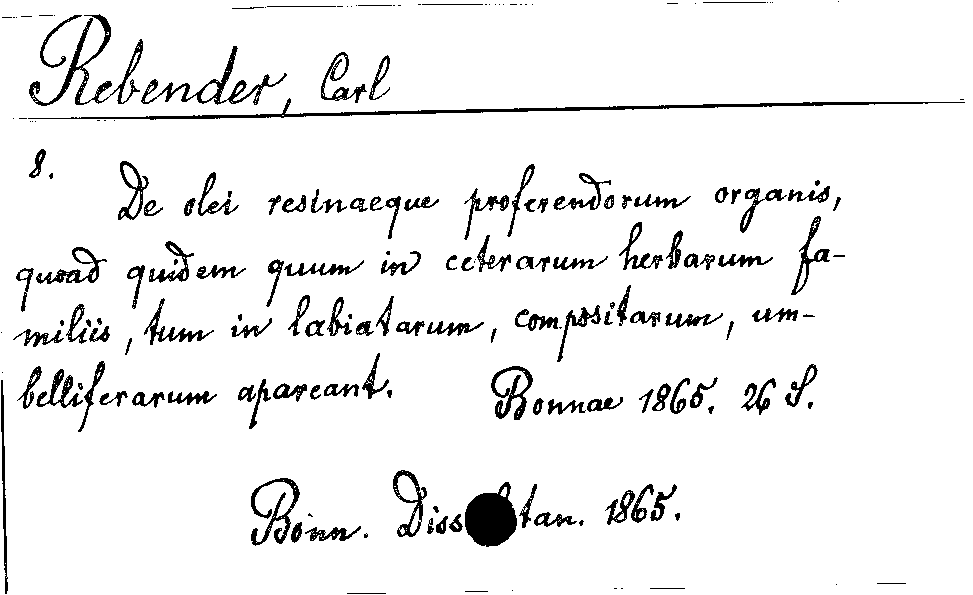 Rebender, Carl
8.
De olei resinaeque proferendorum organis,
quoad quidem quum in ceterarum herbarum fa-
miliis, tum in labiatarum, compositarum, um-
belliferarum apareant.
Bonnae 1865. 26 S.
Bonn. Diss tan. 1865.